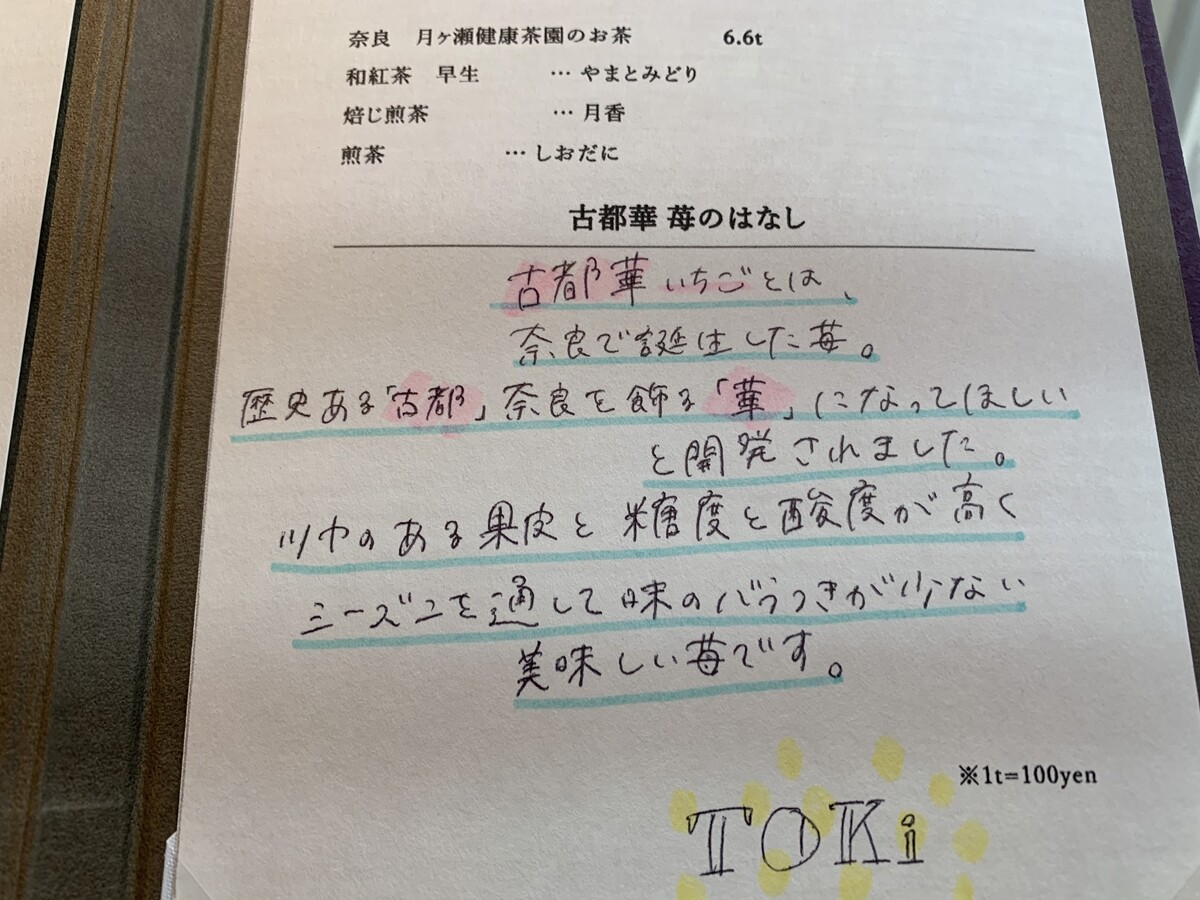 奈良　月ヶ瀬健康茶園のお茶　6.6t
和紅茶　早生　… やまとみどり
焙じ煎茶　… 月香
煎茶　… しおだに
古都華 苺のはなし
古都華いちごとは、
奈良で誕生した苺。
歴史ある「古都」奈良を飾る「華」になってほしい
と開発されました。
ツヤのある果皮と糖度と酸度が高く
シーズンを通して味のバラつきが少ない
美味しい苺です。
※1t=100yen
TOKi